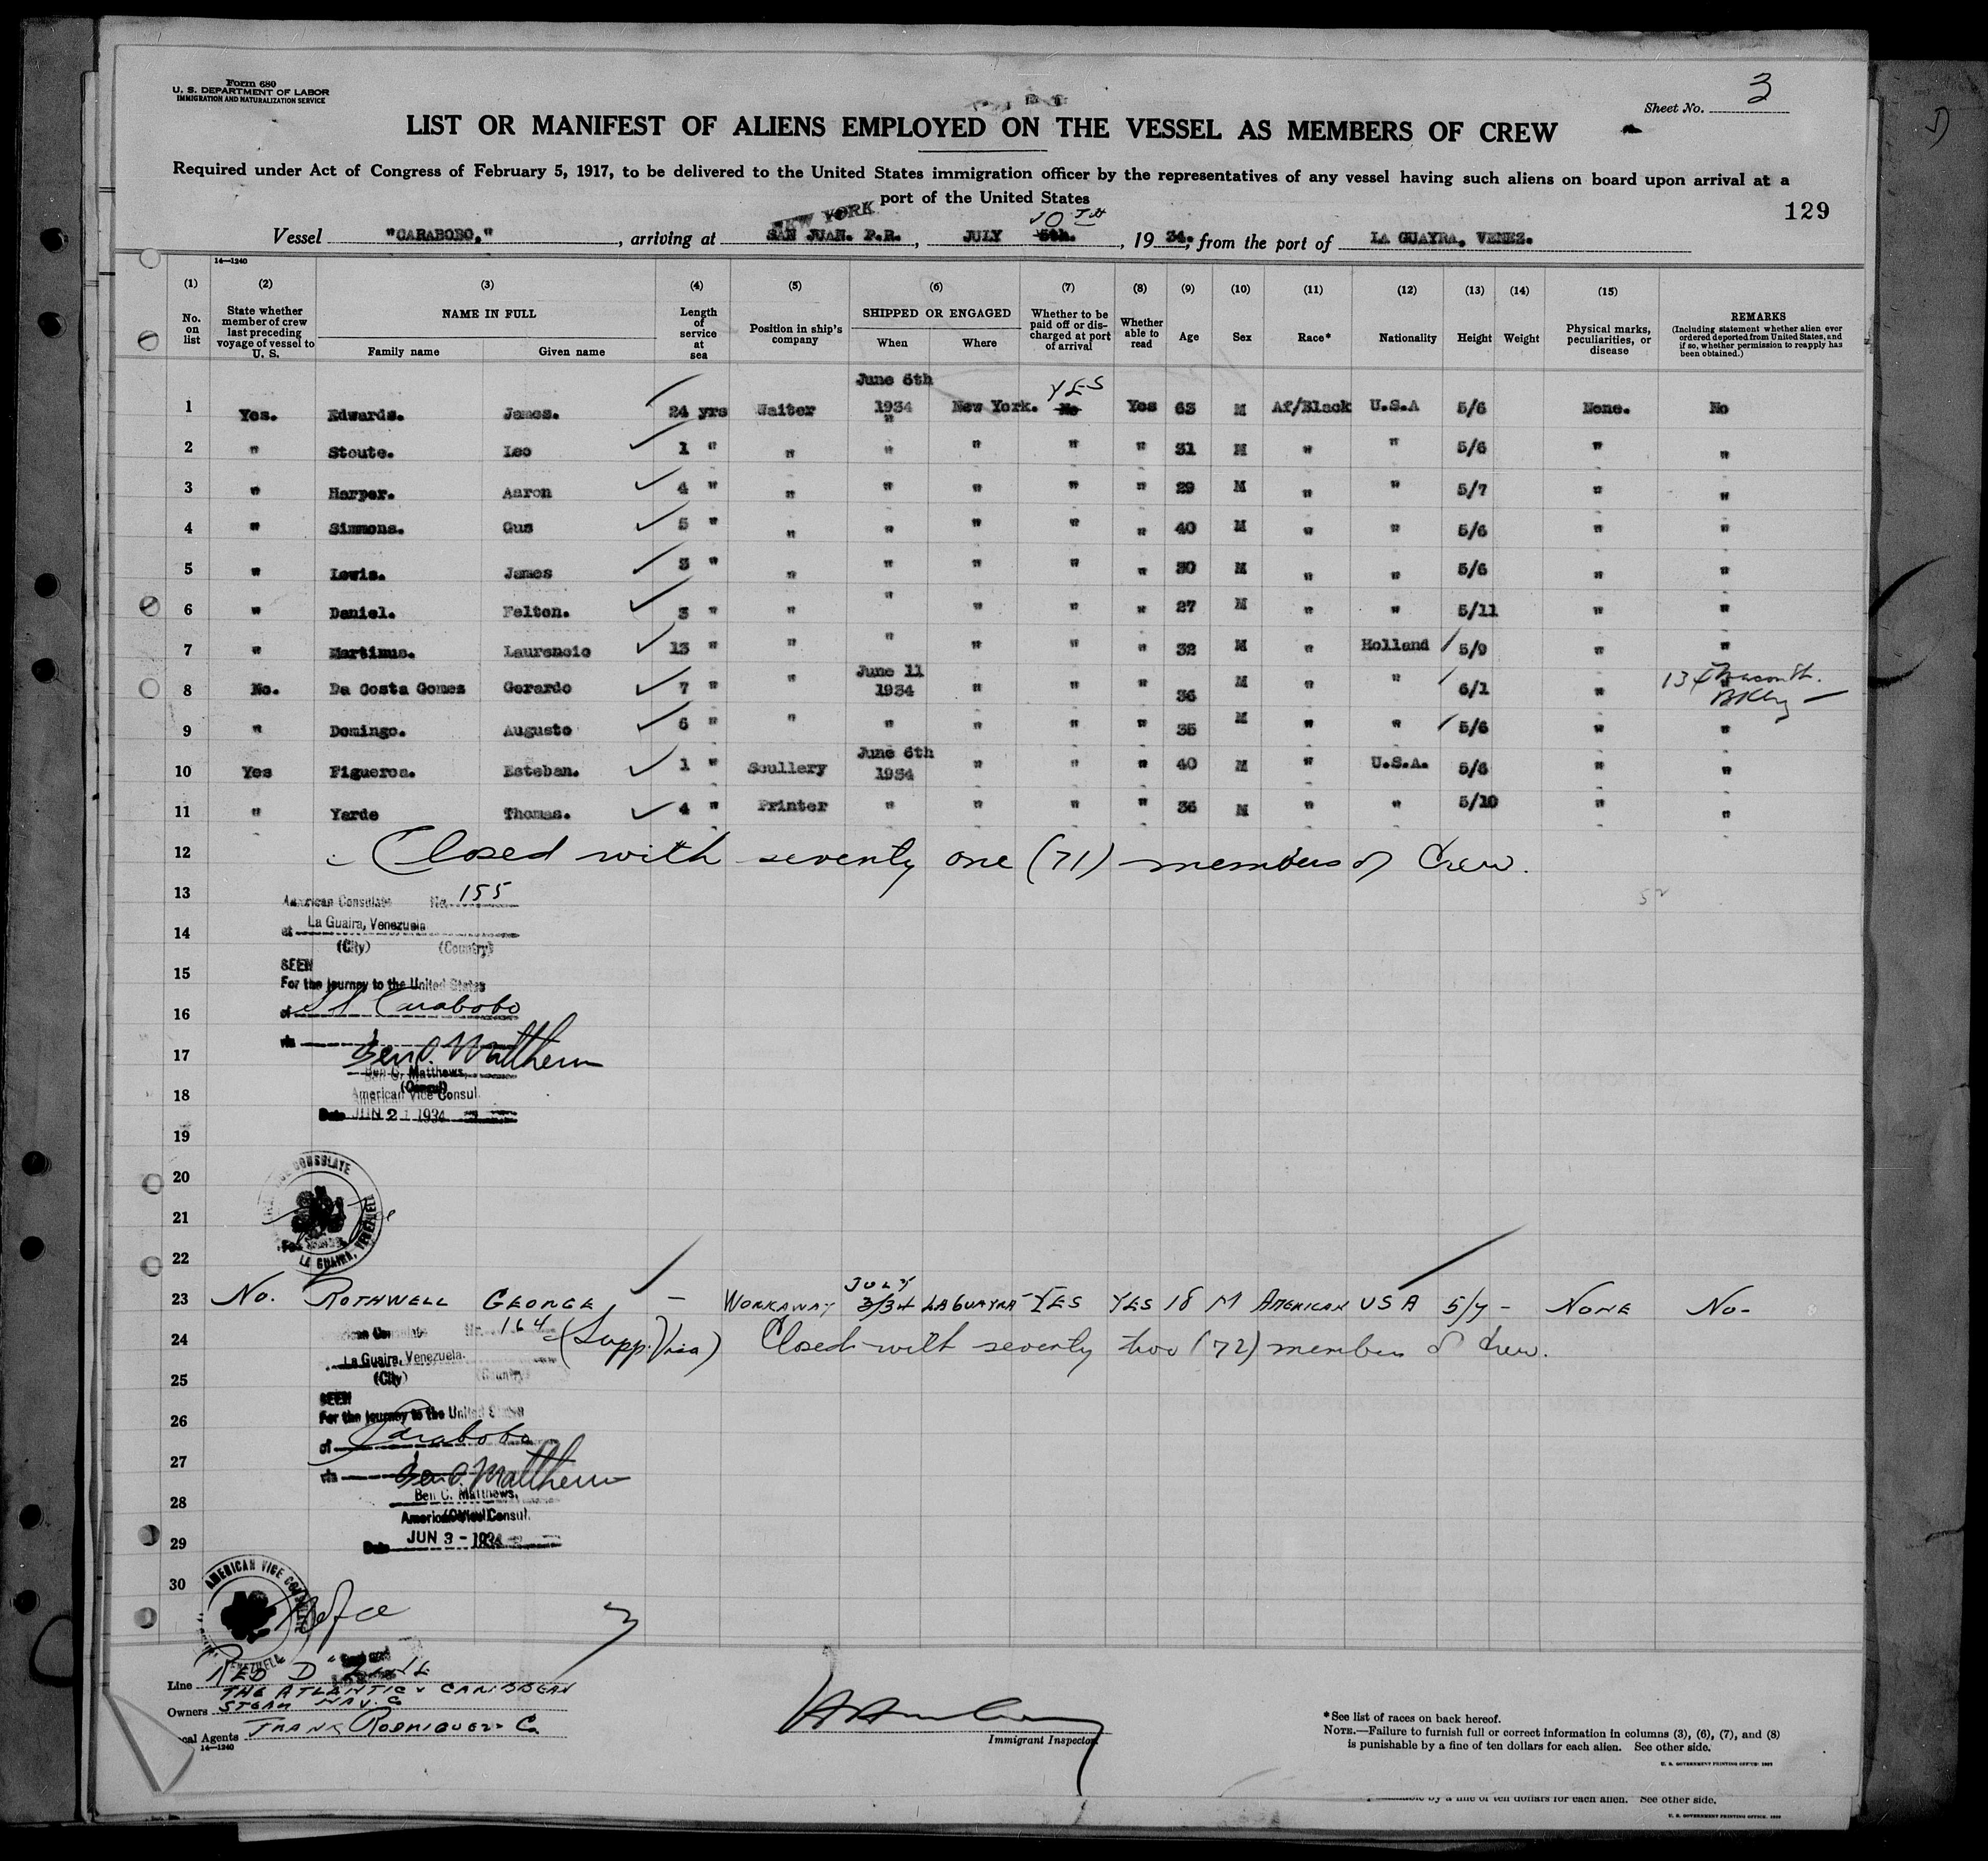 Form 680
U. S. DEPARTMENT OF LABOR
IMMIGRATION AND NATURALIZATION SERVICE
Sheet No. 3
LIST OR MANIFEST OF ALIENS EMPLOYED ON THE VESSEL AS MEMBERS OF CREW
Required under Act of Congress of February 5, 1917, to be delivered to the United States immigration officer by the representatives of any vessel having such aliens on board upon arrival at a
port of the United States
129
NEW YORK 10TH
Vessel "CARABOBO," , arriving at SAN JUAN. P.R. , JULY 5th. , 19 34. , from the port of LA GUAYRA, VENEZ.
14—1240
(1) (2) (3) (4) (5) (6) (7) (8) (9) (10) (11) (12) (13) (14) (15)
No. on list
State whether member of crew last preceding voyage of vessel to U. S.
NAME IN FULL
Family name Given name
Length of service at sea
Position in ship's company
SHIPPED OR ENGAGED
When Where
Whether to be paid off or discharged at port of arrival
Whether able to read
Age Sex Race* Nationality Height Weight
Physical marks, peculiarities, or disease
REMARKS
(Including statement whether alien ever ordered deported from United States, and if so, whether permission to reapply has been obtained.)
June 6th YES
1 Yes. Edwards. James. 24 yrs Waiter 1934 New York. No Yes 63 M Af/Black U.S.A 5/6 None. No
2 " Stoute. Leo 1 " " " " " " 31 M " " 5/6 " "
3 " Harper. Aaron 4 " " " " " " 29 M " " 5/7 " "
4 " Simmons. Gus 5 " " " " " " 40 M " " 5/6 " "
5 " Lewis. James 3 " " " " " " 30 M " " 5/6 " "
6 " Daniel. Felton. 3 " " " " " " 27 M " " 5/11 " "
7 " Martinus. Laurencio 13 " " " " " " 32 M " Holland 5/9 " "
June 11
8 No. Da Costa Gomes Gerardo 7 " " 1934 " " " 36 M " " 6/1 " "
9 " Domingo. Augusto 6 " " " " " " 35 M " " 5/6 " "
June 6th
10 Yes Figueroa. Esteban. 1 " Scullery 1934 " " " 40 M " U.S.A. 5/6 " "
11 " Yarde Thomas. 4 " Printer " " " " 36 M " " 5/10 " "
12 Closed with seventy one (71) members of Crew.
13 American Consulate No. 155
14 at La Guaira, Venezuela
(City) (Country)
15 SEEN
For the journey to the United States
16 of SS Carabobo
via
17 Ben C. Matthews
Ben C. Matthews,
(Consul)
18 American Vice Consul.
Date JUN 2 1934
19
20
21
LA GUAIRA, VENEZUELA
22
JULY
23 No. ROTHWELL GEORGE, — WORKAWAY 3/34 LAGUAYRA YES YES 18 M AMERICAN USA 5/7 – NONE NO-
24 164 (Supp. Visa) Closed with seventy two (72) members of Crew.
La Guaira, Venezuela.
25 (City) (Country)
SEEN
26 For the journey to the United States
of Carabobo
27 via Ben C. Matthews
28 Ben C. Matthews,
American Vice Consul.
29 Date JUN 3 - 1934
30
AMERICAN VICE CONSULATE
VENEZUELA
Line RED "D" LINE
Owners THE ATLANTIC & CARIBBEAN
STEAM NAV. Co
Local Agents FRANK RODRIGUEZ Co.
14—1240
Immigrant Inspector.
*See list of races on back hereof.
NOTE.—Failure to furnish full or correct information in columns (3), (6), (7), and (8)
is punishable by a fine of ten dollars for each alien. See other side.
U. S. GOVERNMENT PRINTING OFFICE
is punishable by a fine of ten dollars for each alien. See other side.
U. S. GOVERNMENT PRINTING OFFICE